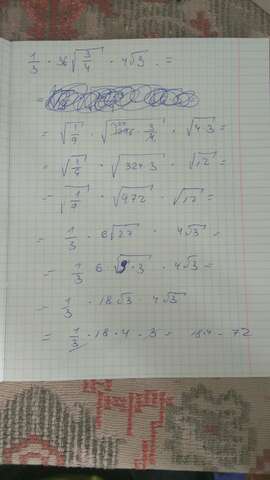 1/3 · 36√3/4 · 4√3 . =
=
= √1/9 · √1296 · 3/4 · √4·3 =
= √1/9 · √324·3 · √12 =
= √1/9 · √972 · √12 =
= 1/3 · 6√27 · 4√3 =
= 1/3 6 √9·3 · 4√3 =
= 1/3 · 18√3 4√3
= 1/3 · 18 · 4 · 3 = 18·4 = 72